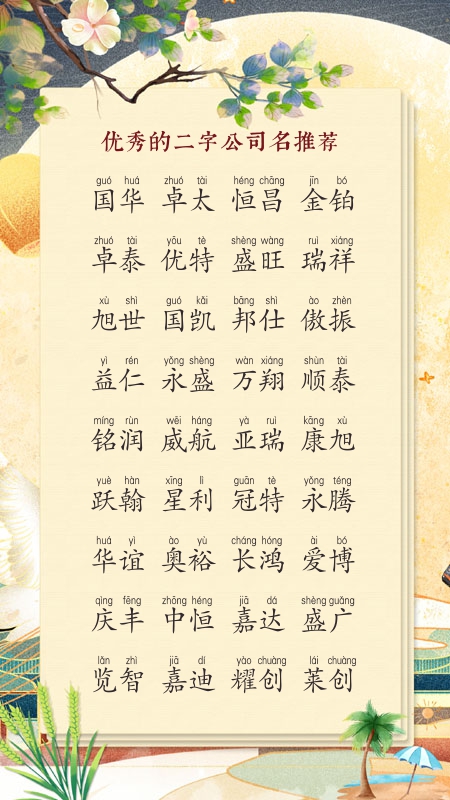 优秀的二字公司名推荐
guó huá zhuó tài héng chāng jīn bó
国华 卓太 恒昌 金铂
zhuó tài yōu tè shèng wàng ruì xiáng
卓泰 优特 盛旺 瑞祥
xù shì guó kǎi bāng shì ào zhèn
旭世 国凯 邦仕 傲振
yì rén yǒng shèng wàn xiáng shùn tài
益仁 永盛 万翔 顺泰
míng rùn wēi háng yà ruì kāng xù
铭润 威航 亚瑞 康旭
yuè hàn xīng lì guān tè yǒng téng
跃翰 星利 冠特 永腾
huá yì ào yù cháng hóng ài bó
华谊 奥裕 长鸿 爱博
qìng fēng zhōng héng jiā dá shèng guǎng
庆丰 中恒 嘉达 盛广
lǎn zhì jiā dí yào chuàng lái chuàng
览智 嘉迪 耀创 莱创